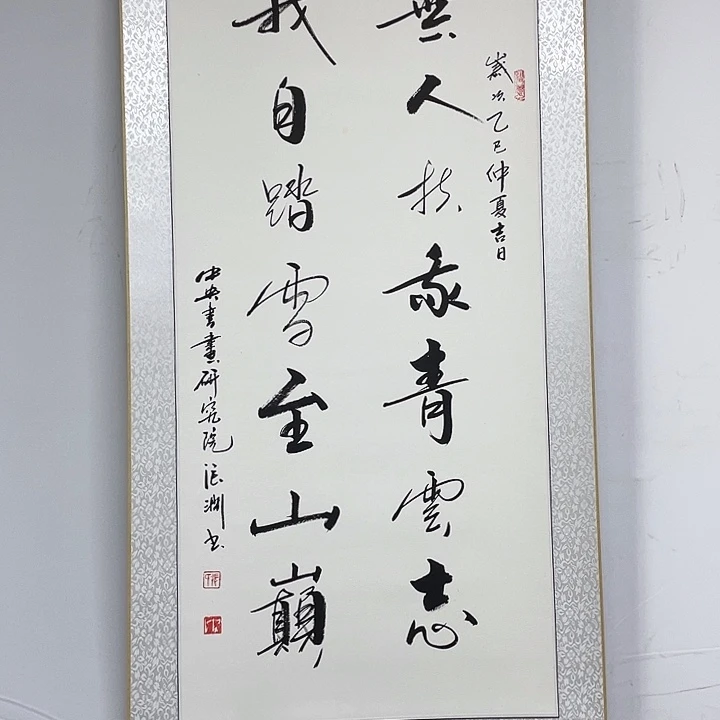 歲次乙巳仲夏吉日
無人扶我青雲志
我自踏雪至山巔
中央書畫研究院 渊书